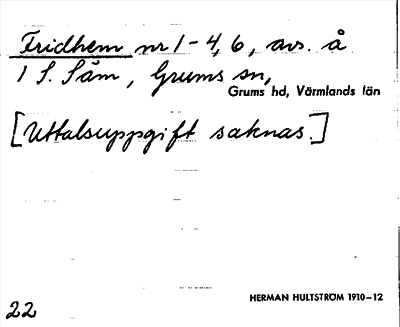 Fridhem nr 1-4, 6, avs. å
1 S. Säm, Grums sn,
Grums hd, Värmlands län
[Uttalsuppgift saknas.]
HERMAN HULTSTRÖM 1910-12
22